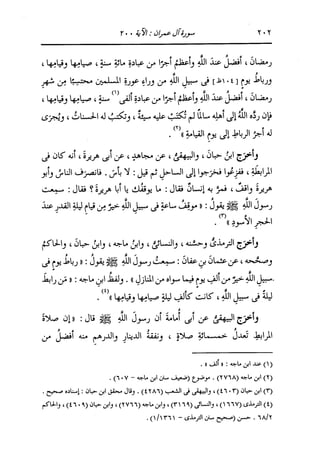 ٢٠٢ سورة آل عمران : الآية ٢٠٠
رمضانَ ، أفضلُ عندَ اللَّهِ وأعظمُ أجرًا من عبادةِ مائةِ سنةٍ ، صيامِها وقيامِها ،
ورباطُ يومٍ [١٠٤ظ] فى سبيلِ اللَّهِ من وراءِ عورةِ المسلمين محتسبًا مِن شهرِ
رمضانَ ، أفضلُ عندَ اللَّهِ وأعظمُ أجرًا من عبادةِ ألفَى(١) سنةٍ ، صيامِها وقيامِها ،
فإن ردَّه اللَّهُ إلى أهلِه سالمًا لم تُكتَبْ عليه سيئةٌ ، وتكتبُ له الحسناتُ ، ويُجرَى
له أجرُ الرباطِ إلى يومِ القيامةِ »(٢) .
وأخرَج ابنُ حبانَ ، والبيهقىُّ ، عن مجاهدٍ ، عن أبى هريرةَ ، أنه كان فى
المرابطةِ ، ففزِعُوا فخرَجوا إلى الساحلِ ثم قيل : لا بأسَ . فانصرَف الناسُ وأبو
هريرةَ واقفٌ ، فمرَّ به إنسانٌ فقال : ما يوقفُك يا أبا هريرةَ ؟ فقال : سمعتُ
رسولَ اللَّهِ ﷺ يقولُ : « موقفُ ساعةٍ فى سبيلِ اللَّهِ خيرٌ مِن قيامِ ليلةِ القدرِ عندَ
الحجرِ الأسودِ »(٣) .
وأخرَج الترمذىُّ وحسَّنه ، والنسائىُّ ، وابنُ ماجه ، وابنُ حبانَ ، والحاكمُ
وصحَّحه ، عن عثمانَ بنِ عفانَ : سمِعتُ رسولَ اللَّهِ ﷺ يقولُ : « رباطُ يومٍ فى
سبيلِ اللَّهِ خيرٌ من ألفِ يومٍ فيما سواه من المنازلِ » . ولفظُ ابنِ ماجه : « مَن رابَط
ليلةً فى سبيلِ اللَّهِ ، كانت كألفِ ليلةٍ صيامِها وقيامِها »(٤) .
وأخرَج البيهقىُّ عن أبى أُمامةَ أن رسولَ اللَّهِ ﷺ قال : « إن صلاةَ
المرابطِ تعدِلُ خمسَمائةِ صلاةٍ ، ونفقةُ الدينارِ والدرهمِ منه أفضلُ من
(١) عند ابن ماجه : « ألف » .
(٢) ابن ماجه (٢٧٦٨) . موضوع (ضعيف سنن ابن ماجه - ٦٠٧) .
(٣) ابن حبان (٤٦٠٣) ، والبيهقى فى الشعب (٤٢٨٦) . وقال محقق ابن حبان : إسناده صحيح .
(٤) الترمذى (١٦٦٧) ، والنسائى (٣١٦٩) ، وابن ماجه (٢٧٦٦) ، وابن حبان (٤٦٠٩) ، والحاكم
٦٨/٢ . حسن (صحيح سنن الترمذى - ١٣٦١/١) .